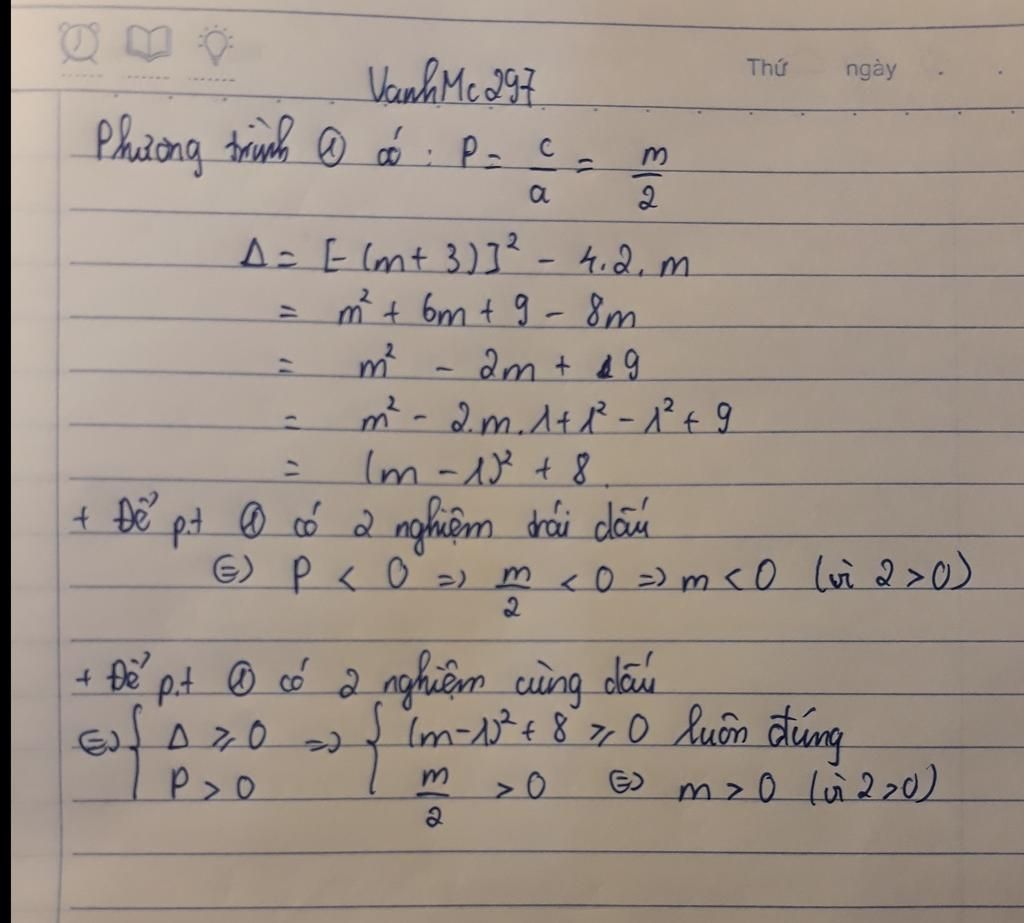 Thứ ngày
VanhMc297
Phương trình ① có : P = c/a = m/2
Δ = [-(m+3)]² - 4.2.m
= m² + 6m + 9 - 8m
= m² - 2m + 9
= m² - 2.m.1+1² - 1² + 9
= (m - 1)² + 8
+ Để p.t ① có 2 nghiệm trái dấu
⇔ P < 0 => m/2 < 0 => m < 0 (vì 2 > 0)
+ Để p.t ① có 2 nghiệm cùng dấu
⇔ { Δ ≥ 0 => { (m-1)² + 8 ≥ 0 luôn đúng
P > 0 m/2 > 0 ⇔ m > 0 (vì 2 >0)